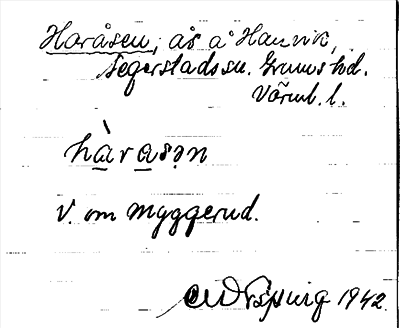 Haråsen, ås å Hanvik,
Segerstads sn. Grums hd.
Värml. l.
hàrasən
V. om Myggerud.
1942.